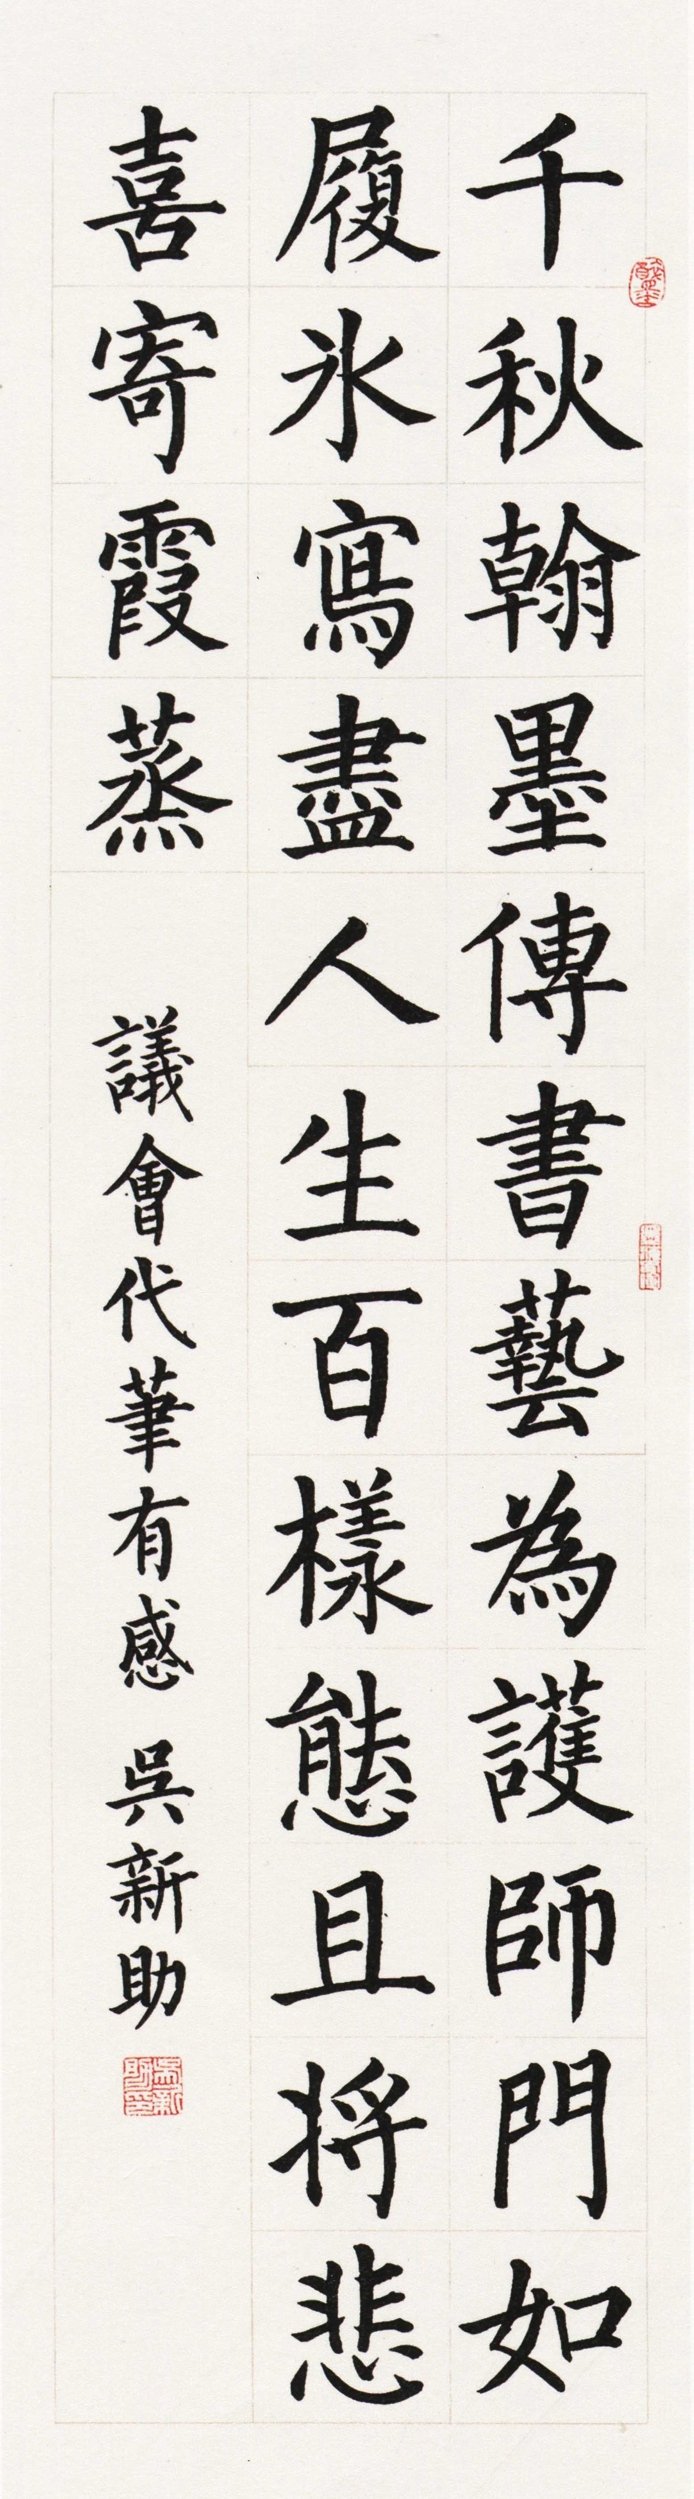 千秋翰墨傳書藝為護師門如
履氷寫盡人生百樣態且将悲
喜寄霞蒸
議會代筆有感 吳新助
吳新助印